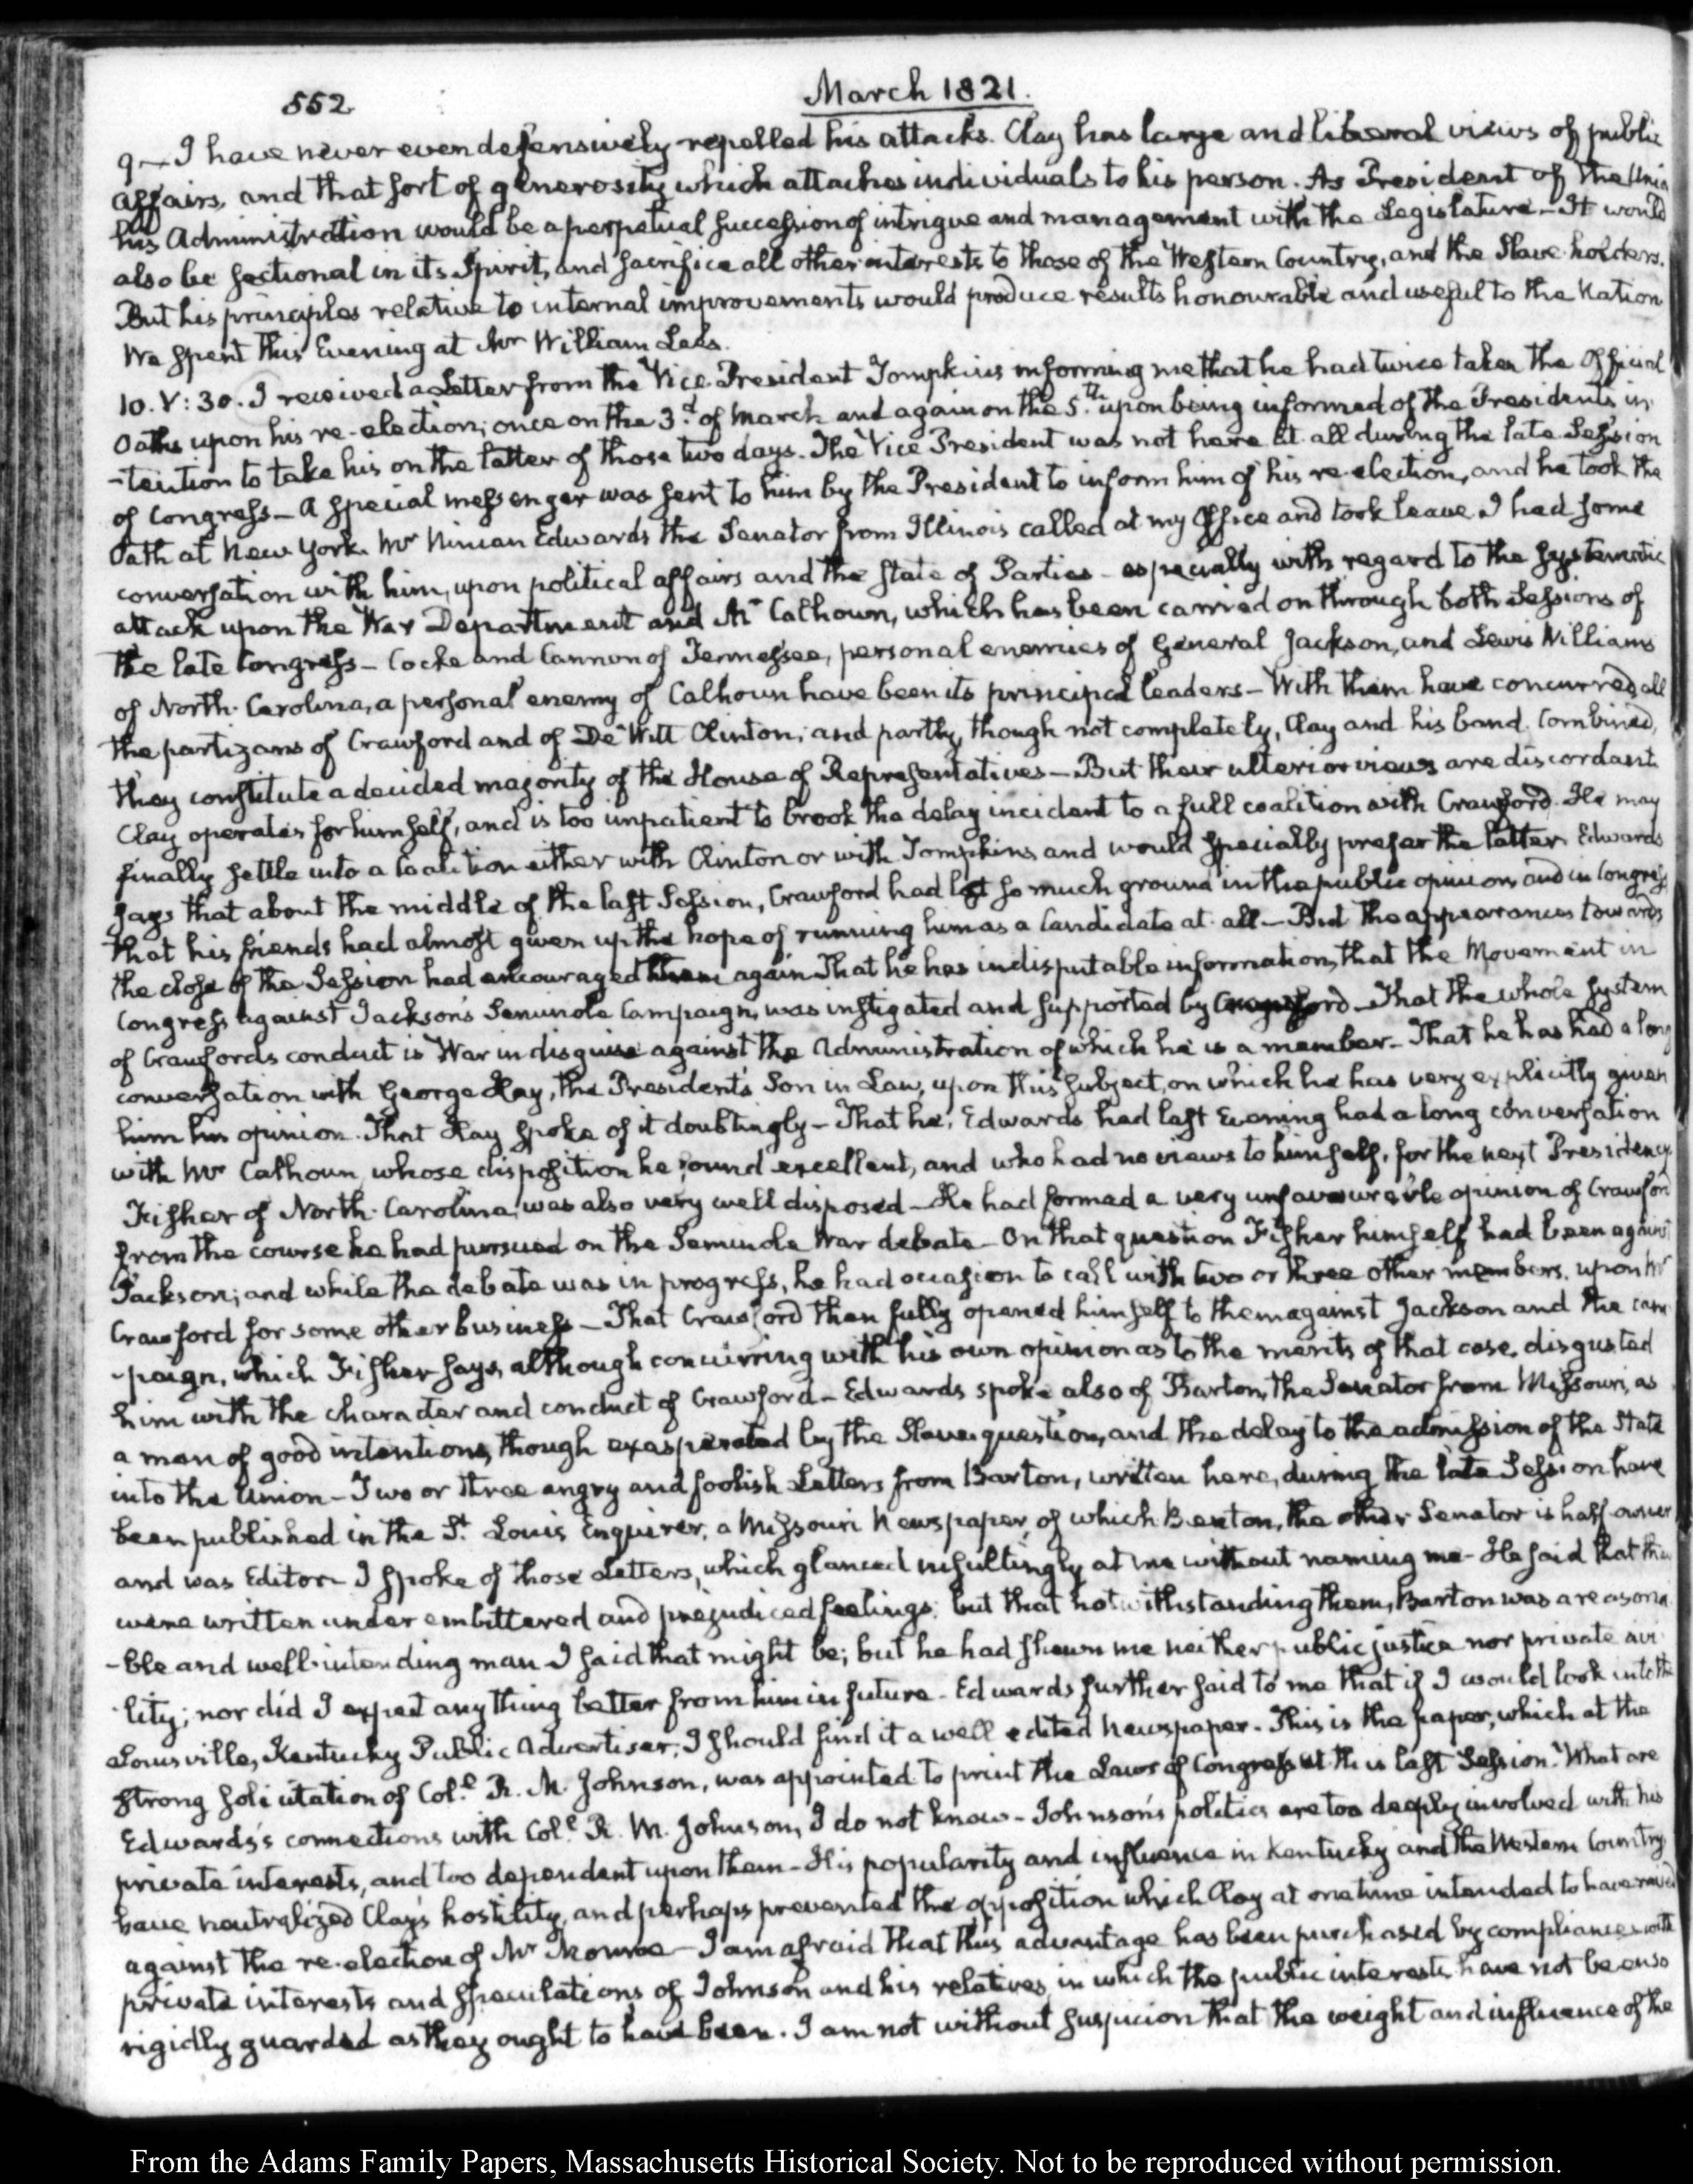 552
March 1821.
9— I have never even defensively repelled his attacks. Clay has large and liberal views of public
affairs, and that sort of generosity which attaches individuals to his person. As President of the Union
his Administration would be a perpetual succession of intrigue and management with the Legislature— It would
also be sectional in its Spirit, and sacrifice all other interests to those of the Western Country, and the Slave-holders.
But his principles relative to internal improvements would produce results honourable and useful to the Nation
We spent this Evening at Mr William Lee's.
10. V: 30. I received a Letter from the Vice-President Tompkins informing me that he had twice taken the Official
Oaths upon his re-election; once on the 3.d of March and again on the 5.th upon being informed of the Presidents in
-tention to take his on the latter of those two days. The Vice President was not here at all during the late Session
of Congress— A special messenger was sent to him by the President to inform him of his re-election, and he took the
Oath at New York. Mr Ninian Edwards the Senator from Illinois called at my Office and took leave. I had some
conversation with him, upon political affairs and the state of Parties— especially with regard to the systematic
attack upon the War Department and Mr Calhoun, which has been carried on through both Sessions of
the late Congress— Cocke and Cannon of Tennessee, personal enemies of General Jackson, and Lewis Williams
of North-Carolina, a personal enemy of Calhoun have been its principal leaders— With them have concurred all
the partizans of Crawford and of De Witt Clinton; and partly, though not completely, Clay and his band. Combined,
they constitute a decided majority of the House of Representatives— But their ulterior views are discordant.
Clay operates for himself, and is too impatient to brook the delay incident to a full coalition with Crawford. He may
finally settle into a Coalition either with Clinton or with Tompkins and would specially prefer the latter. Edwards
says that about the middle of the last Session, Crawford had lost so much ground in the public opinion and in Congress
that his friends had almost given up the hope of running him as a Candidate at all— But the appearances towards
the close of the Session had encouraged them again. That he has indisputable information, that the Movement in
Congress against Jackson's Seminole Campaign, was instigated and supported by Crawford— That the whole system
of Crawfords conduct is War in disguise against the Administration of which he is a member— That he has had a long
conversation with George Hay, the President's Son in Law, upon this subject, on which he has very explicitly given
him his opinion. That Hay spoke of it doubtingly— That he, Edwards had last Evening had a long conversation
with Mr Calhoun, whose disposition he found excellent, and who had no views to himself, for the next Presidency.
Fisher of North-Carolina, was also very well disposed— He had formed a very unfavourable opinion of Crawford
from the course he had pursued on the Seminole War debate— On that question Fisher himself had been against
Jackson; and while the debate was in progress, he had occasion to call with two or three other members, upon Mr
Crawford for some other business— That Crawford then fully opened himself to them against Jackson and the cam
-paign, which Fisher says, although concurring with his own opinion as to the merits of that case, disgusted
him with the character and conduct of Crawford— Edwards spoke also of Barton, the Senator from Missouri, as
a man of good intentions, though exasperated by the Slave question, and the delay to the admission of the State
into the Union— Two or three angry and foolish Letters from Barton, written here, during the late Session have
been published in the St. Louis Enquirer, a Missouri Newspaper, of which Benton, the other Senator is half owner
and was Editor— I spoke of those Letters, which glanced insultingly at me without naming me— He said that they
were written under embittered and prejudiced feelings; but that notwithstanding them, Barton was a reasona
-ble and well-intending man— I said that might be; but he had shewn me neither public justice nor private civi
-lity; nor did I expect any thing better from him in future— Edwards further said to me that if I would look into the
Louisville, Kentucky Public Advertiser, I should find it a well edited Newspaper— This is the paper, which at the
strong solicitation of Col.l R. M. Johnson, was appointed to print the Laws of Congress at this last Session. What are
Edwards's connections with Col.l R. M. Johnson, I do not know— Johnson's politics are too deeply involved with his
private interests, and too dependent upon them— His popularity and influence in Kentucky and the Western Country,
have neutralized Clay's hostility, and perhaps prevented the opposition which Clay at one time intended to have raised
against the re-election of Mr Monroe— I am afraid that this advantage has been purchased by compliances with
private interests and speculations of Johnson and his relatives, in which the public interests have not been so
rigidly guarded as they ought to have been. I am not without suspicion that the weight and influence of the
From the Adams Family Papers, Massachusetts Historical Society. Not to be reproduced without permission.